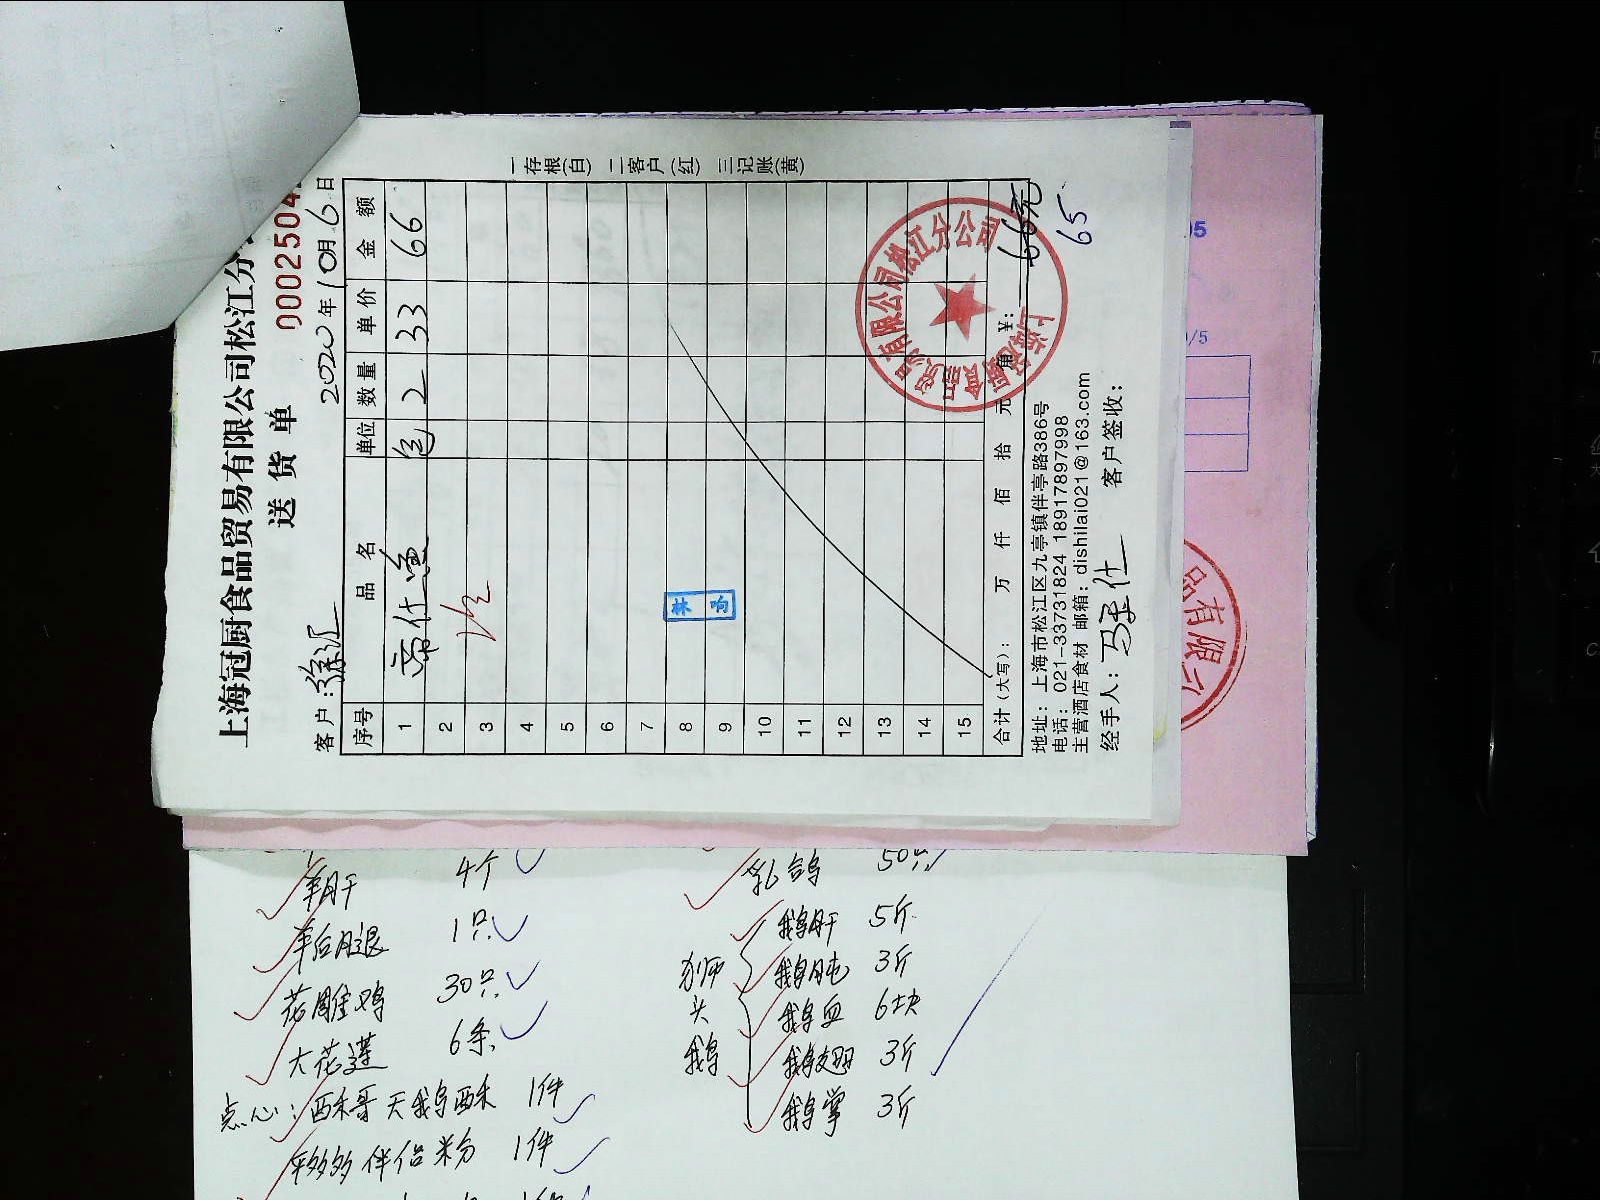 上海冠厨食品贸易有限公司松江分
送货单
0002504
客户:徐汇
2020年10月6日
序号 品名 单位 数量 单价 金额
1 包 2 33 66
2
3
4
5
6
7
8
9
10
11
12
13
14
15
合计(大写): 万 仟 佰 拾 元 角 ¥: 66元
65
地址: 上海市松江区九亭镇伴亭路386号
电话: 021-33731824 18917897998
主营酒店食材 邮箱: dishilai021@163.com
经手人: 客户签收:
一存根(白) 二客户(红) 三记账(黄)
松江分公司
05
/5
品有限公
羊肝 4个
羊后腿 1只
花雕鸡 30只
大花莲 6条
点心: 酥哥天鹅酥 1件
年多多伴侣粉 1件
乳鸽 50只
狮头鹅
鹅肝 5斤
鹅肫 3斤
鹅血 6块
鹅翅 3斤
鹅掌 3斤